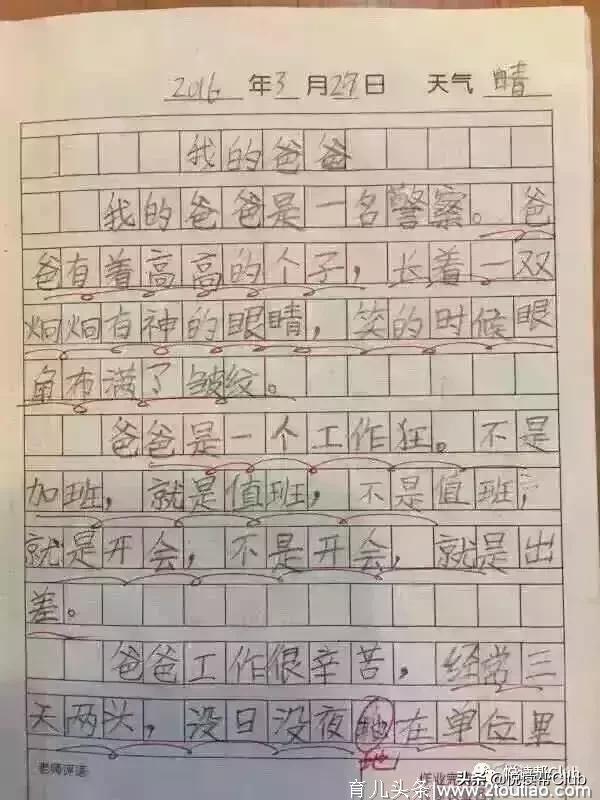 2016 年 3 月 27 日 天气 晴
我的爸爸
我的爸爸是一名警察。爸
爸有着高高的个子，长着一双
炯炯有神的眼睛，笑的时候眼
角布满了皱纹。
爸爸是一个工作狂。不是
加班，就是值班，不是值班，
就是开会，不是开会，就是出
差。
爸爸工作很辛苦，经常三
天两头，没日没夜地在单位里
地
老师评语:
头条@悦读帮Club
育儿头条 www.2toutiao.com